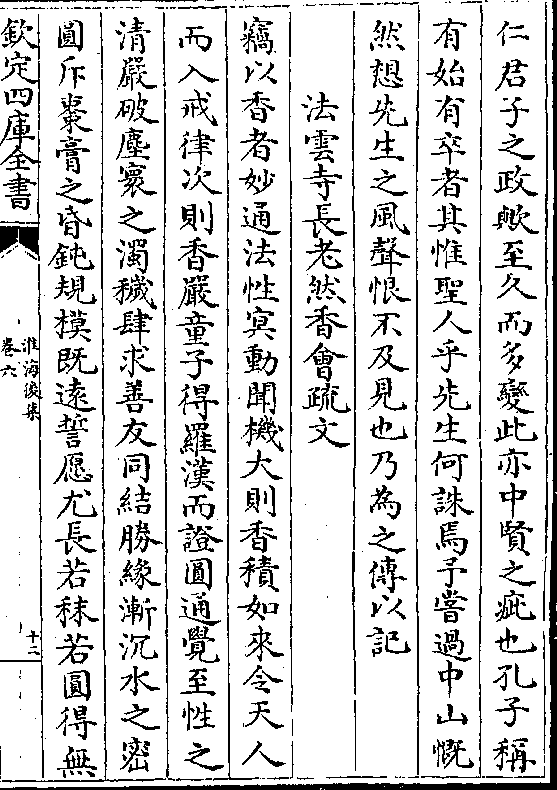 仁君子之政歟至久而多變此亦中賢之疵也孔子稱
有始有卒者其惟聖人乎先生何誅焉予嘗過中山慨
然想先生之風聲恨不及見也乃為之傳以記
法雲寺長老然香會疏文
竊以香者妙通法性㝠動聞機大則香積如來令天人
而入戒律次則香嚴童子得羅漢而證圓通覺至性之
清嚴破塵寰之濁穢肆求善友同結勝緣漸沉水之宻
圓斥棗膏之昏鈍規模既遠誓愿尤長若秣若圓得無
欽定四庫全書
淮海後集
卷六
十二